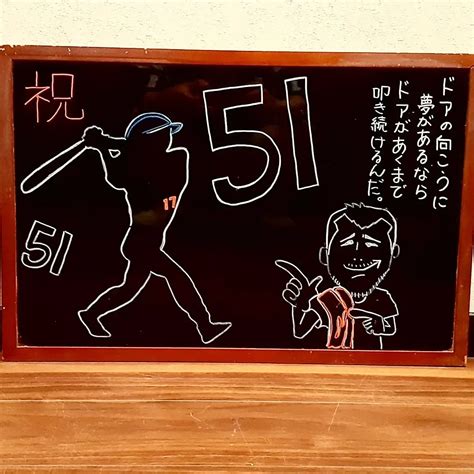 祝
51
17
51
ドアの向こうに
夢があるなら
ドアがあくまで
叩き続けるんだ。